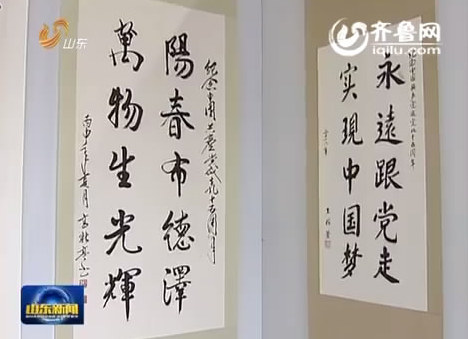 山东
齐鲁网
iqilu.com
纪念中国共产党成立九十五周年
陽春布德澤
萬物生光輝
永遠跟党走
实現中国梦
山东新闻